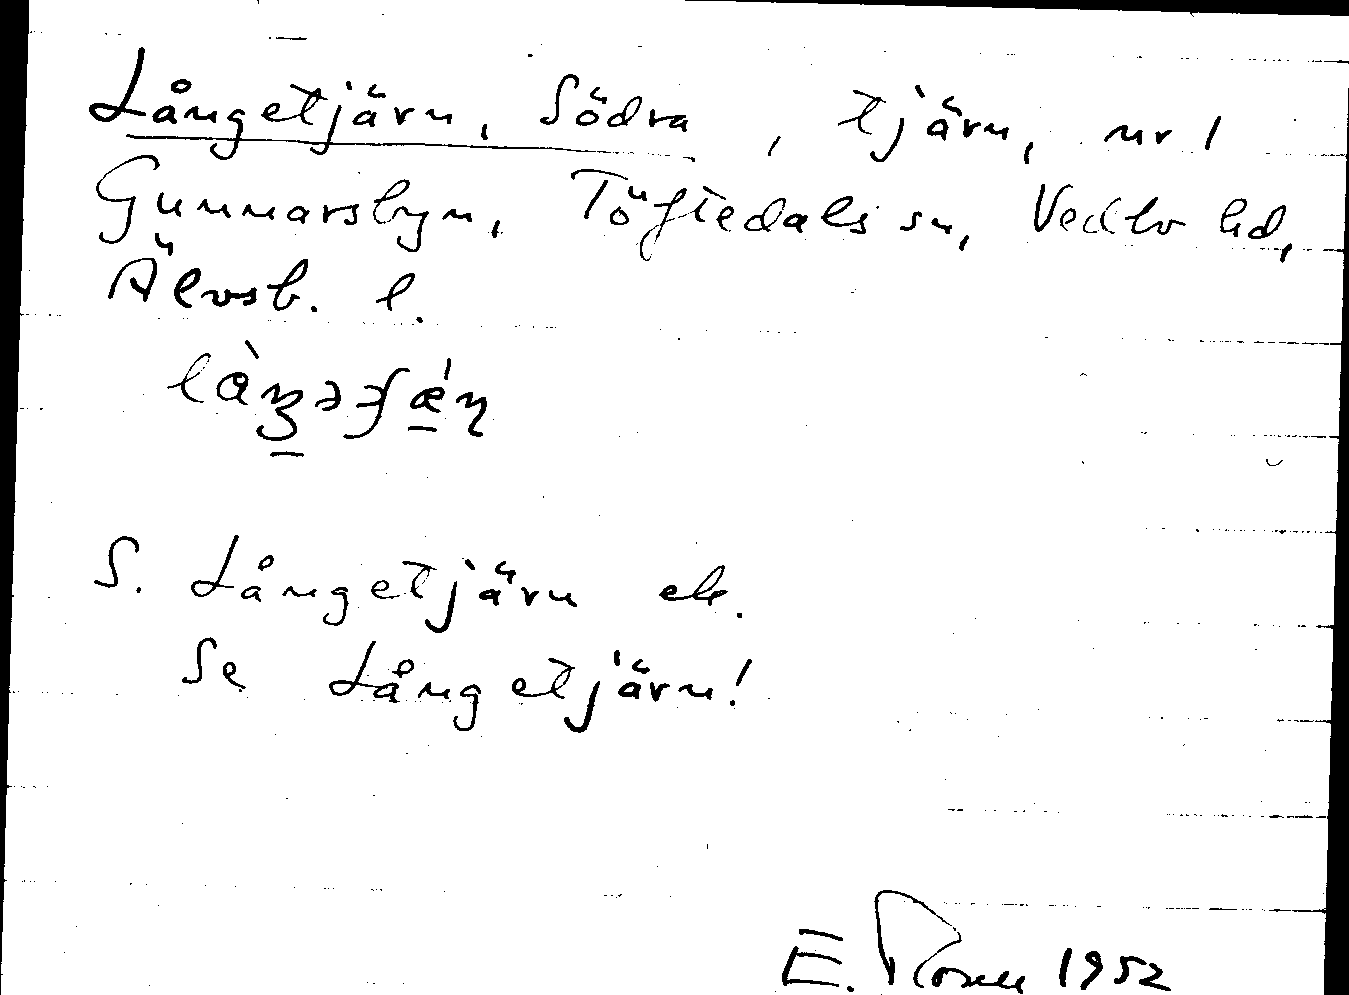 Långetjärn, Södra, tjärn, nr 1
Gunnarsbyn, Töftedals sn, Vedbo hd,
Älvsb. l.
S. Långetjärn ek.
Se Långetjärn!
E. Rosell 1952